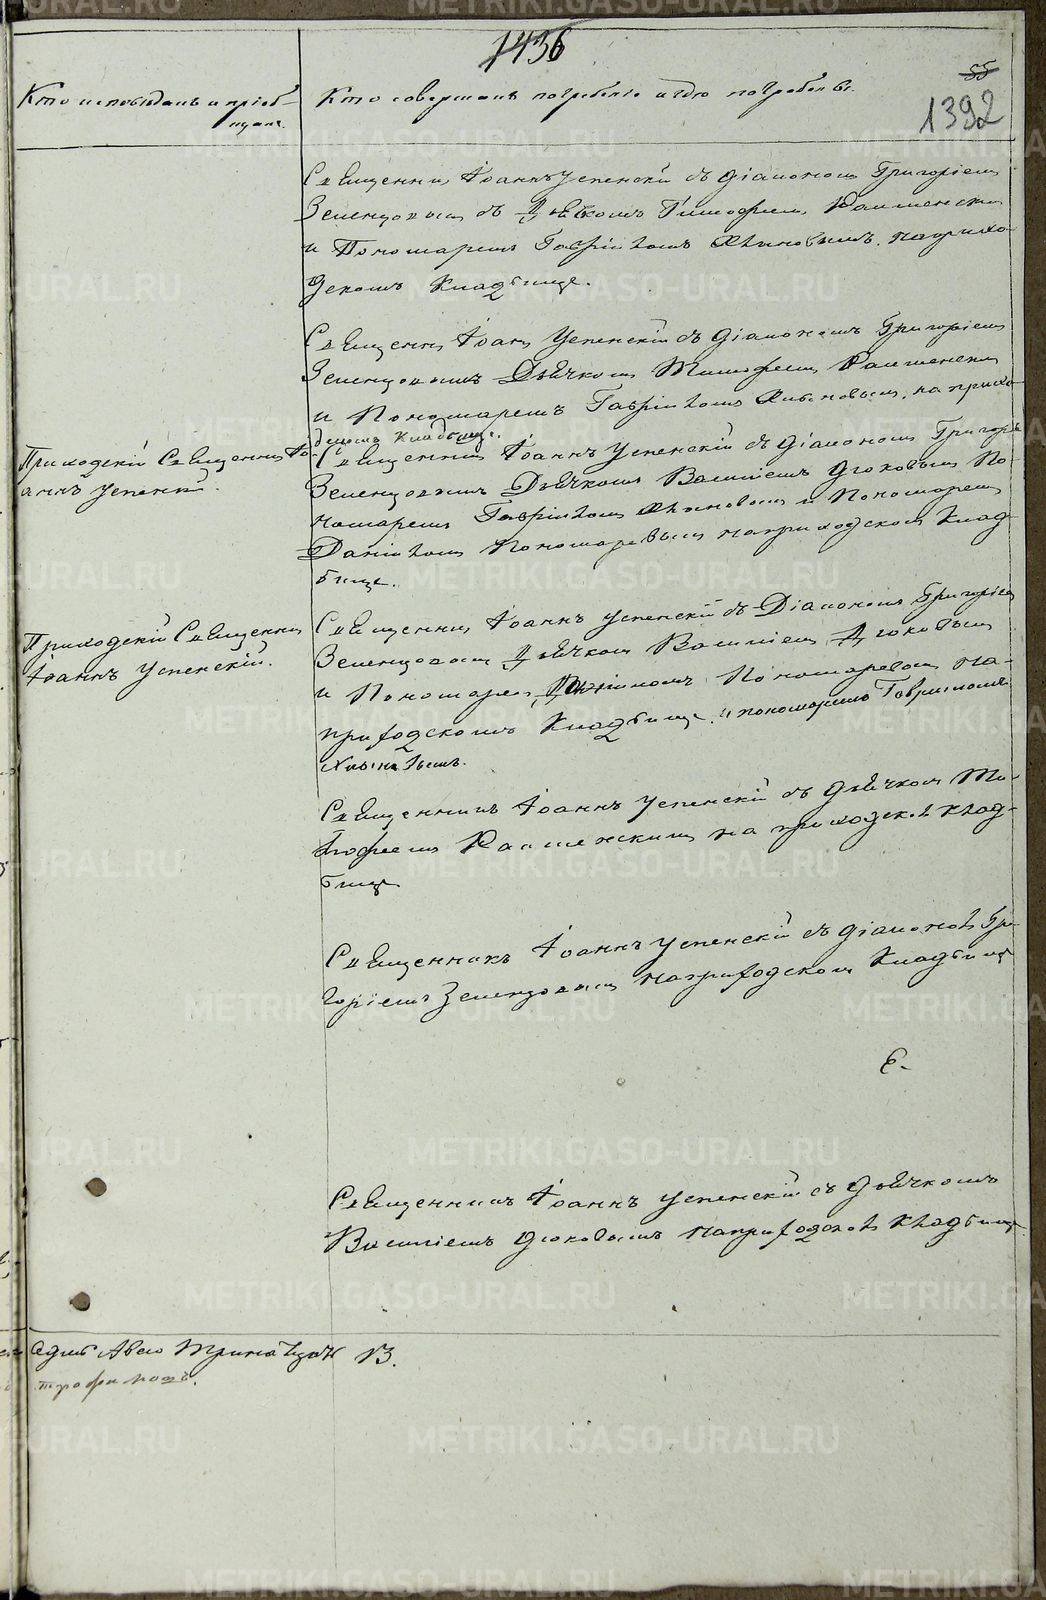 1436
55
1392
Кто исповѣдалъ и пріоб-
щалъ.
Кто совершалъ погребеніе и гдѣ погребены.
Священникъ Іоаннъ Успенскій съ діакономъ Григоріемъ
Зеленцовымъ съ Дьячкомъ Тимофеемъ
и Пономаремъ Гавріиломъ на прихо
дскомъ Кладбище.
Священникъ Іоаннъ Успенскій съ діакономъ Григоріемъ
Зеленцовымъ Дьячкомъ Тимофеемъ
и Пономаремъ Гавріиломъ на прихо
дскомъ Кладбище.
Приходскій Священникъ Іо-
аннъ Успенскій.
Священникъ Іоаннъ Успенскій съ діакономъ Григоріе
Зеленцовымъ Дьячкомъ Василіемъ По
номаремъ Гавріиломъ и Пономаремъ
Даніиломъ Пономаревымъ на приходскомъ Клад
бище.
Приходскій Священникъ
Іоаннъ Успенскій.
Священникъ Іоаннъ Успенскій съ Діакономъ Григоріемъ
Зеленцовымъ Дьячкомъ Василіемъ
и Пономаремъ Пономаревымъ на-
приходскомъ Кладбище. и пономаремъ Гавриломъ
Священникъ Іоаннъ Успенскій съ дьячкомъ Ти-
мофеемъ на приходскомъ клад-
бище
Священникъ Іоаннъ Успенскій съ діакономъ Гри-
горіемъ Зеленцовымъ на приходскомъ Кладбище
Священникъ Іоаннъ Успенскій съ дьячкомъ
Василіемъ на приходскомъ кладбище
13.
METRIKI.GASO-URAL.RU